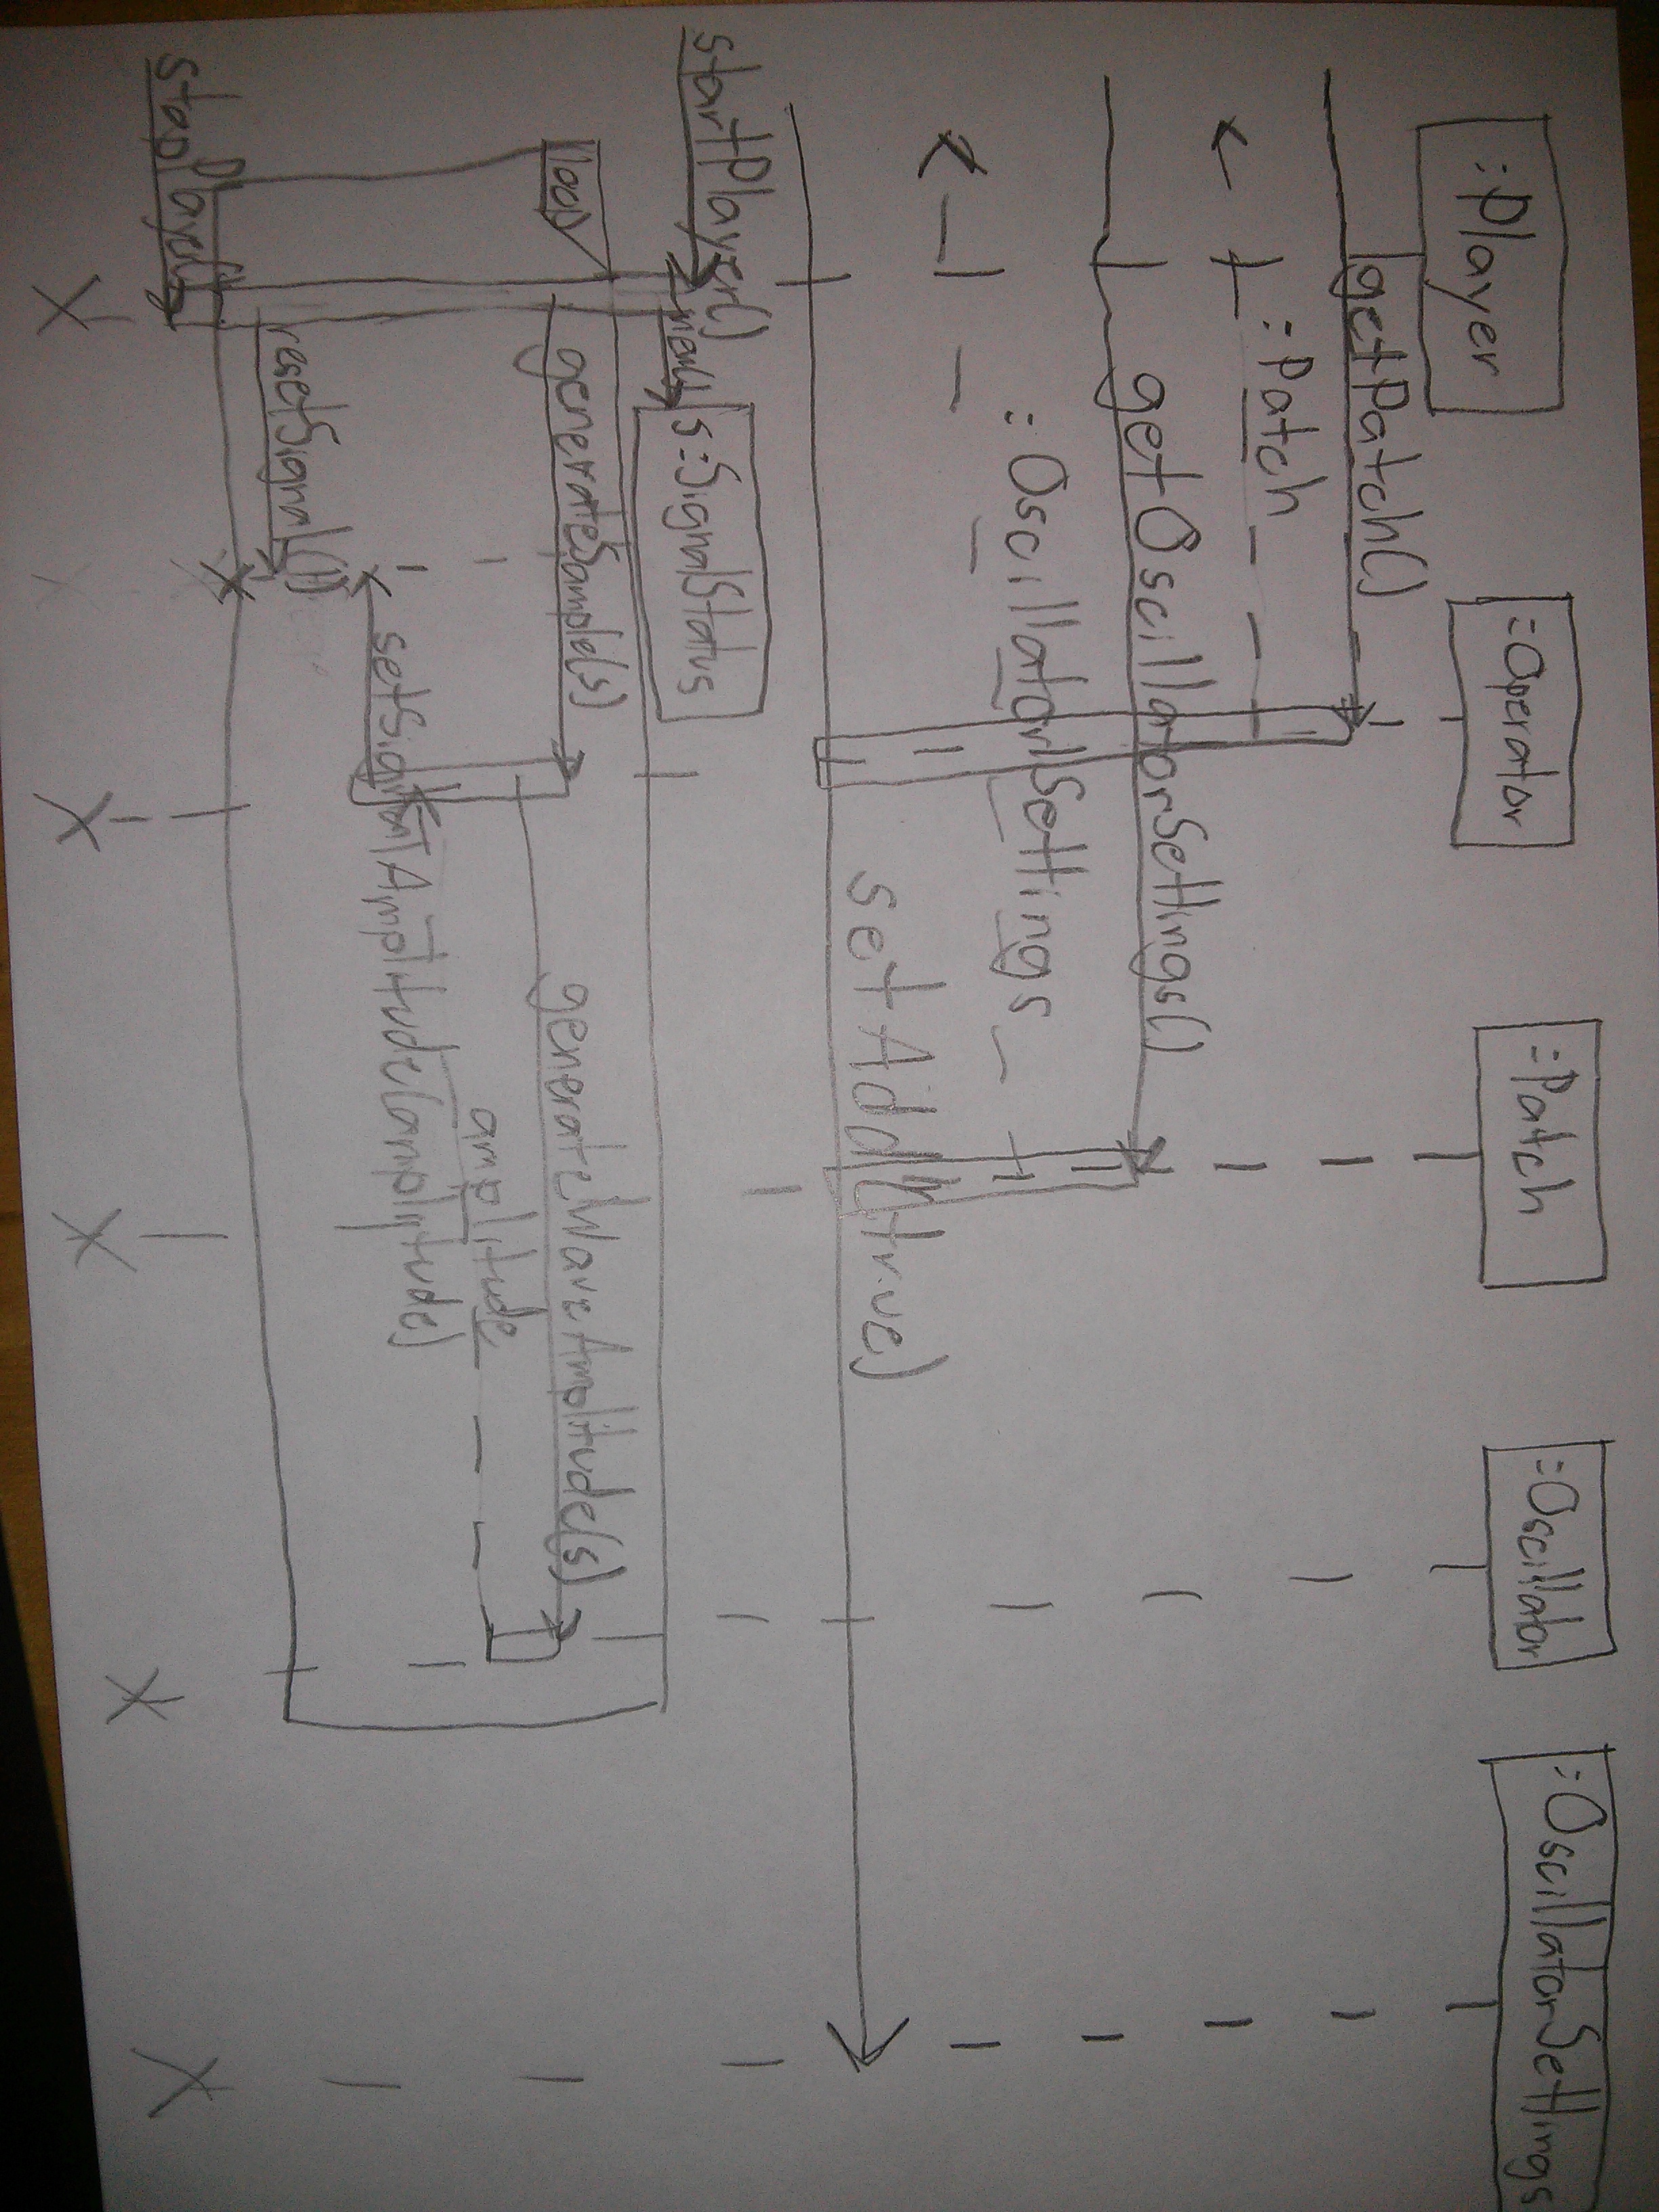 :Player
:Operator
:Patch
:Oscillator
:OscillatorSettings
getPatch()
:Patch
getOscillatorSettings()
:OscillatorSettings
setAdd(true)
startPlayer()
new
s:SignalStatus
loop
generateSample(s)
generateWaveAmplitude(s)
amplitude
setSignalAmplitude(amplitude)
resetSignal()
stopPlayer()